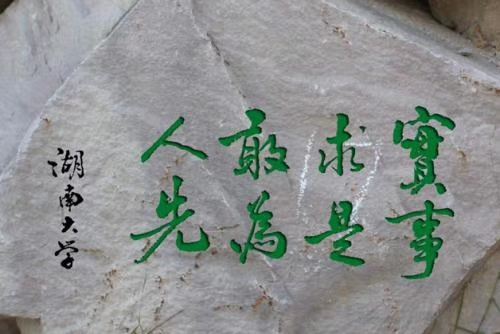 實事
求是
敢為
人先
湖南大学